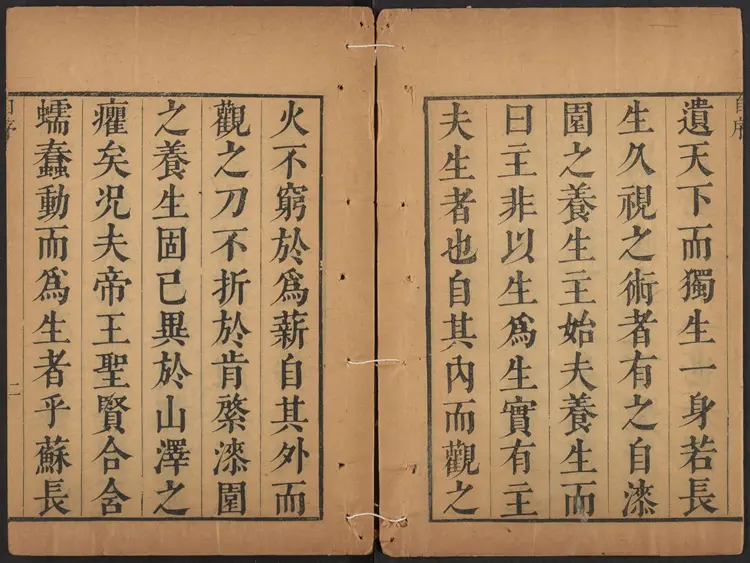 遺天下而獨生一身若長
生久視之術者有之自漆
園之養生主始夫養生而
曰主非以生爲生實有主
夫生者也自其內而觀之
火不窮於爲薪自其外而
觀之刀不折於肯綮漆園
之養生固已異於山澤之
癯矣况夫帝王聖賢合含
蠕蠢動而爲生者乎蘇長
二